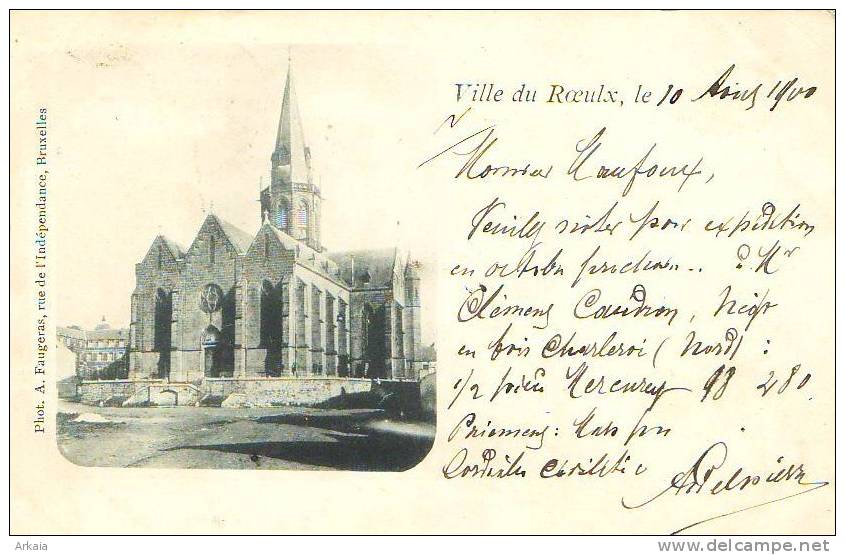 Phot. A. Faugeras, rue de l'Indépendance, Bruxelles
Ville du Rœulx, le 10 Août 1900
Monsieur Maufoux,
Veuillez noter pour expédition
en octobre prochain .. à Mr
Clément Caudron, Négt
en bois Charleroi (Nord) :
1/2 pièce Mercurey 98 280
Paiement : Mars
Cordiales civilités
Arkaia
www.delcampe.net